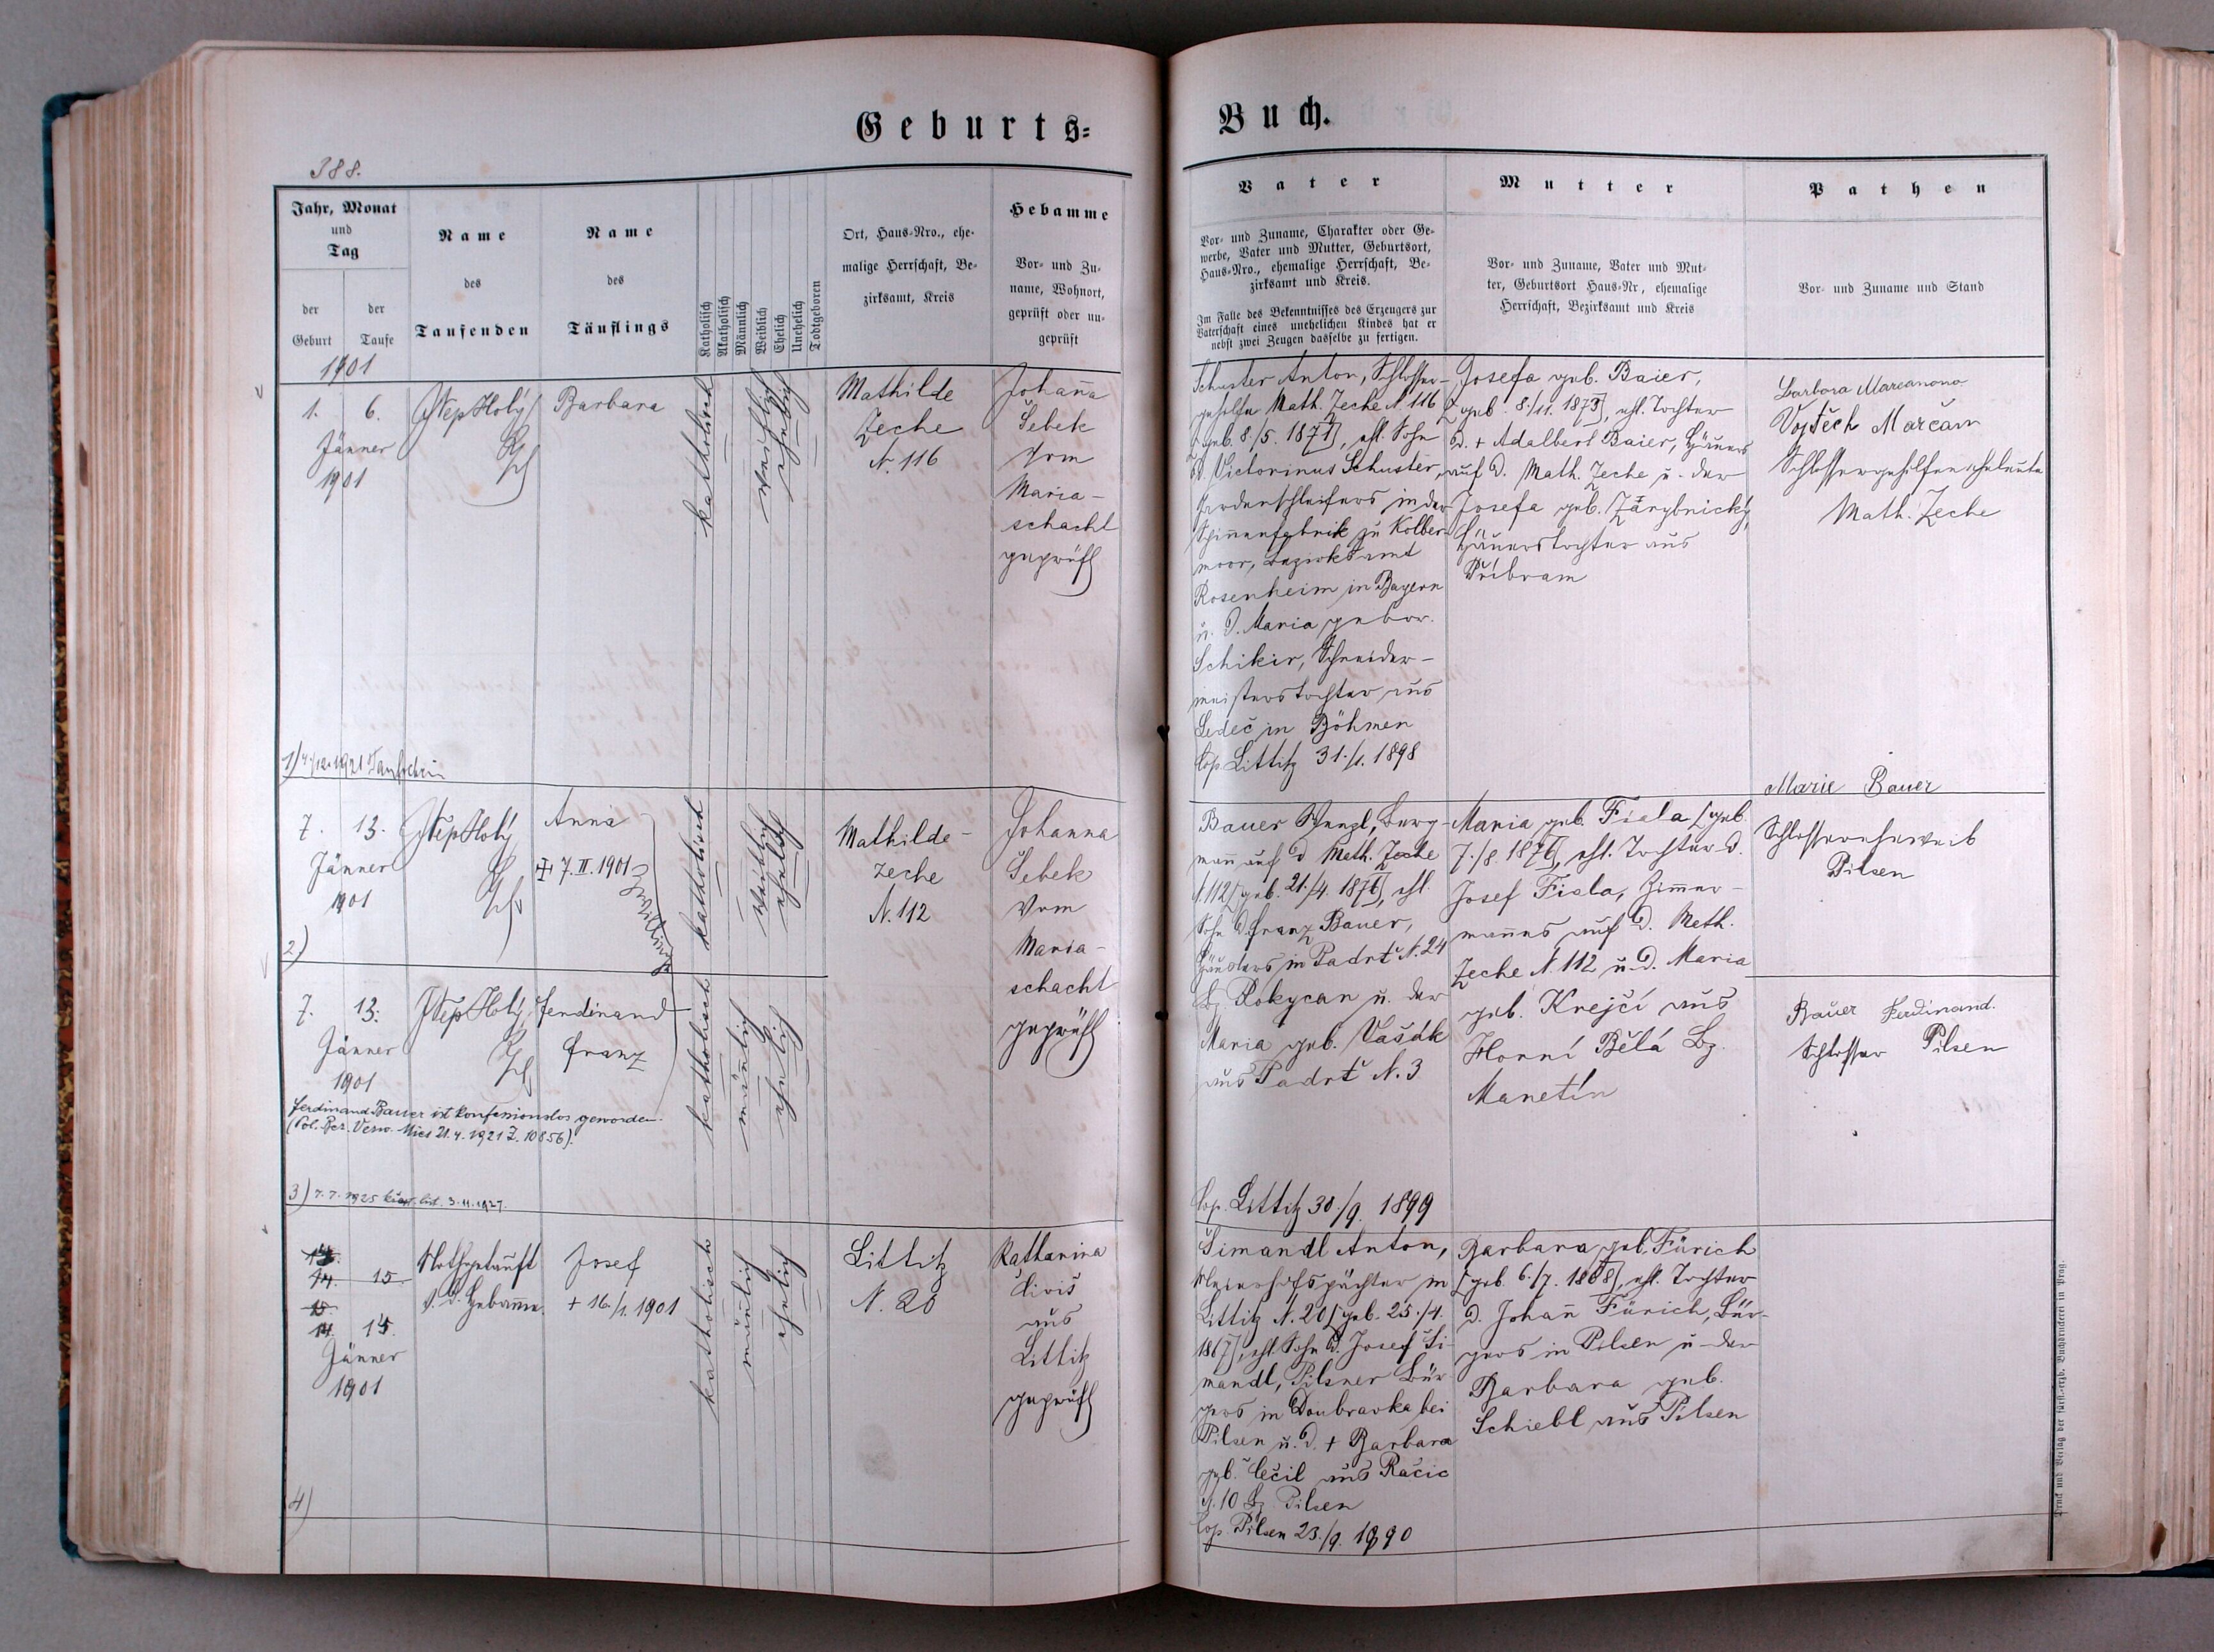 Geburts=
Buch.
388.
Jahr, Monat
und
Tag
der
Geburt
der
Taufe
Name
des
Taufenden
Name
des
Täuflings
Katholisch
Akatholisch
Männlich
Weiblich
Ehelich
Unehelich
Todtgeboren
Ort, Haus-Nro., ehe-
malige Herrschaft, Be-
zirksamt, Kreis
Hebamme
Vor- und Zu-
name, Wohnort,
geprüft oder un-
geprüft
Vater
Vor- und Zuname, Charakter oder Ge-
werbe, Vater und Mutter, Geburtsort,
Haus-Nro., ehemalige Herrschaft, Be-
zirksamt und Kreis.
Im Falle des Bekenntnisses des Erzeugers zur
Vaterschaft eines unehelichen Kindes hat er
nebst zwei Zeugen dasselbe zu fertigen.
Mutter
Vor- und Zuname, Vater und Mut-
ter, Geburtsort Haus-Nr, ehemalige
Herrschaft, Bezirksamt und Kreis
Pathen
Vor- und Zuname und Stand
1901
1. 6.
Jänner
1901
JNep Holý
Barbara
katholisch
weiblich
ehelich
Mathilde
Zeche
N. 116
Johanna
Šebek
vom
Maria-
schacht
geprüft
Schuster Anton, Schlosser-
gehilfe Math. Zeche N. 116
[geb. 8./5. 1871], ehl. Sohn
d. Victorinus Schuster,
in der
Spinnenfabrik zu Kolber-
moor, Bezirksamt
Rosenheim in Bayern
u. d. Maria gebor.
Schikir, Schneider-
meisterstochter aus
Ledeč in Böhmen
Cop. Littitz 31./1. 1898
Josefa geb. Baier,
[geb. 8./11. 1873], ehl. Tochter
d. + Adalbert Baier, Häuers
auf d. Math. Zeche u. der
Josefa geb. Zárybnický,
Häuerstochter aus
Příbram
Barbora Marcanova
Vojtěch Marčan
Schlossergehilfen eheleute
Math. Zeche
1) 4./12. 1921 Taufschein
7. 13.
Jänner
1901
2)
JNep Holý
Anna
+ 7. II. 1901
Zwillinge
katholisch
weiblich
ehelich
Mathilde-
zeche
N. 112
Johanna
Šebek
vom
Maria-
schacht
geprüft
Bauer Wenzl, Berg-
mann auf d. Math. Zeche
N. 112 [geb. 21./4. 1876], ehl.
Sohn d. Franz Bauer,
Häuslers in Padrť N. 24
Bz. Rokycan u. der
Maria geb. Vašák
aus Padrť N. 3
Cop. Littitz 30./9. 1899
Maria geb. Fiala [geb.
7./8. 1876], ehl. Tochter d.
Josef Fiala, Zimmer-
mannes auf d. Math.
Zeche N. 112 u. d. Maria
geb. Krejčí aus
Horní Bělá Bz.
Manetín
Marie Bauer
Schlossereheweib
Pilsen
7. 13.
Jänner
1901
JNep Holý
Ferdinand
Franz
katholisch
männlich
ehelich
Bauer Ferdinand.
Schlosser Pilsen
Ferdinand Bauer ist konfessionslos geworden.
(Pol. Bez. Verw. Mies 21. 4. 1921 Z. 10856).
3) 7. 7. 1925 křest. list. 3. 11. 1927.
14. 15.
14. 15.
Jänner
1901
4)
Nothgetauft
v. d. Hebamme.
Josef
+ 16./1. 1901
katholisch
männlich
ehelich
Littitz
N. 20
Katharina
Diviš
aus
Littitz
geprüft
Šimandl Anton,
Meierhofspächter in
Littitz N. 20 [geb. 25./4.
1867], ehl. Sohn d. Josef Ši-
mandl, Pilsner Bür-
gers in Doubravka bei
Pilsen u. d. + Barbara
geb. Čečil aus Račic
N. 10 Bz. Pilsen
Cop. Pilsen 23./9. 1890
Barbara geb. Fürich
[geb. 6./7. 1868], ehl. Tochter
d. Johann Fürich, Bür-
gers in Pilsen u. der
Barbara geb.
Schiebl aus Pilsen
Druck und Verlag der fürst.-erzb. Buchdruckerei in Prag.